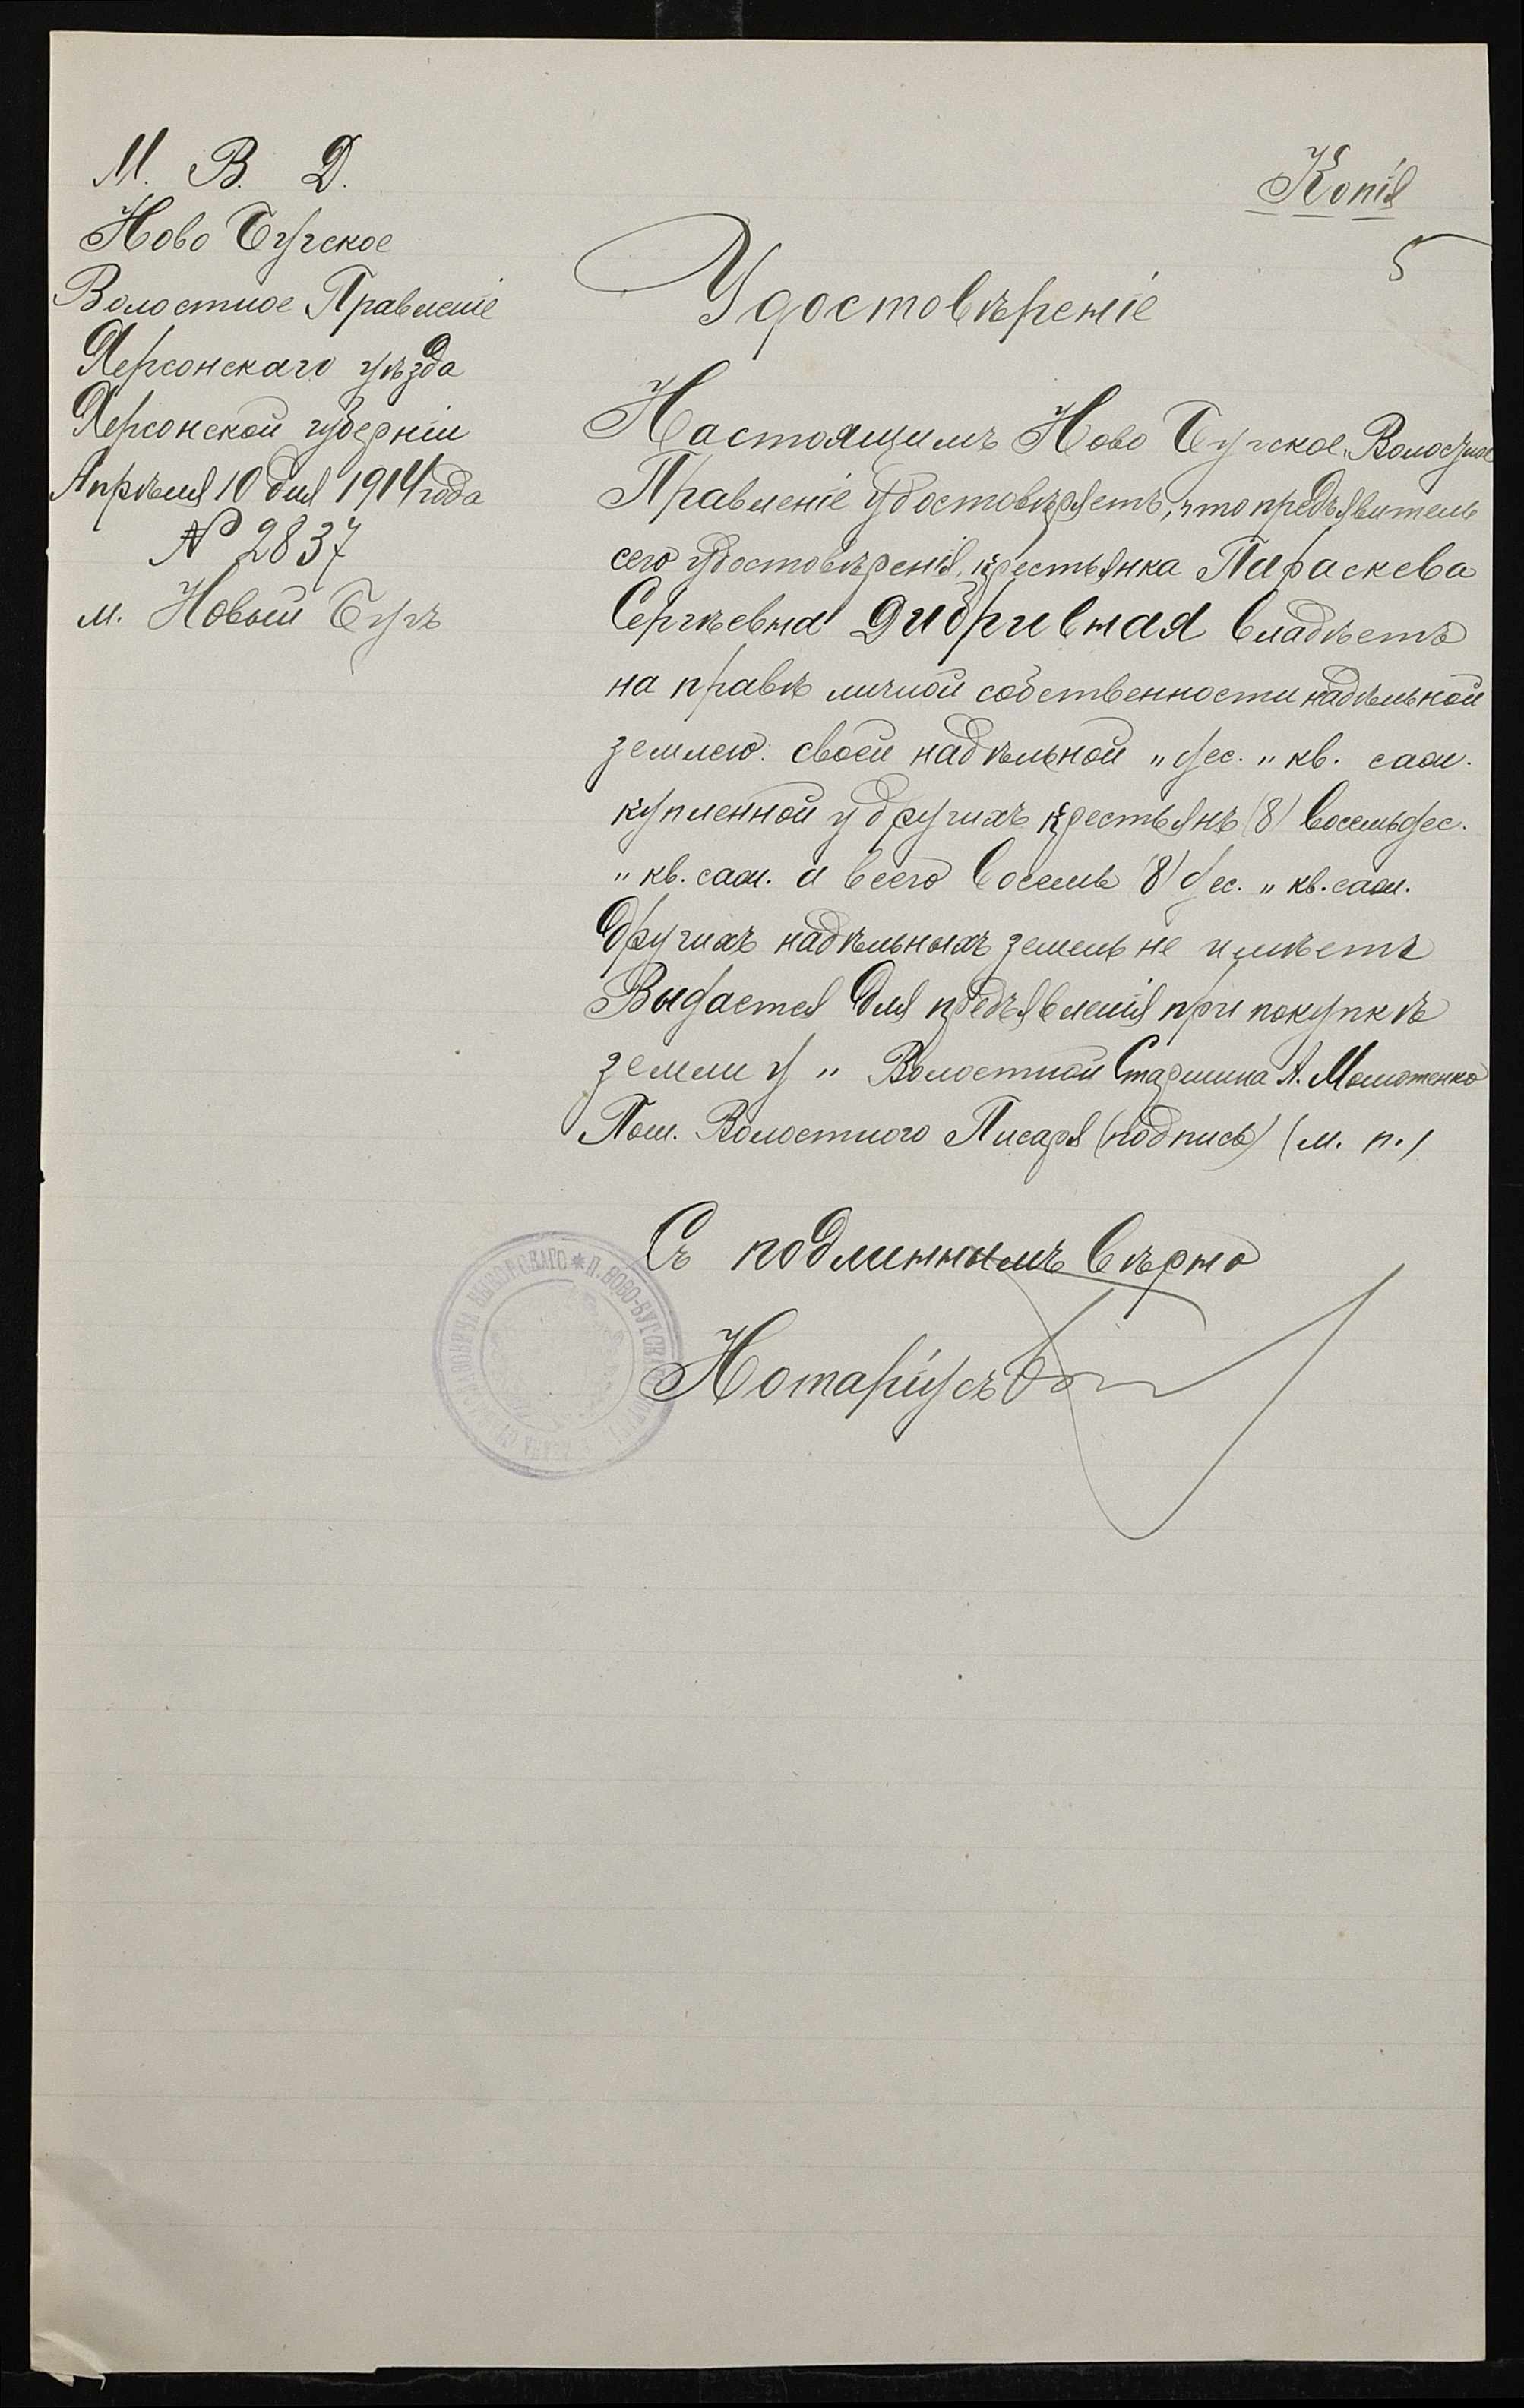 М. В. Д.
Ново Бугское
Волостное Правленіе
Херсонскаго уѣзда
Херсонской губерніи
Апрѣля 10 дня 1914 года
№ 2837
м. Новый Бугъ
Копія
5
Удостовѣреніе
Настоящимъ Ново Бугское Волостное
Правленіе удостовѣряетъ, что предъявитель
сего удостовѣренія, крестьянка Параскева
Сергѣевна Дибривная владѣетъ
на правѣ личной собственности надѣльной
землею: своей надѣльной „ дес. „ кв. саж.
купленной у другихъ крестьянъ (8) восемь дес.
„ кв. саж. а всего восемь (8) дес. „ кв. саж.
Другихъ надѣльныхъ земель не имѣетъ
Выдается для предъявленія при покупкѣ
земли у „ Волостной Старшина А. Молотенко
Пом. Волостного Писаря (подпись) (м. п.)
Съ подлиннымъ вѣрно
Нотаріусъ